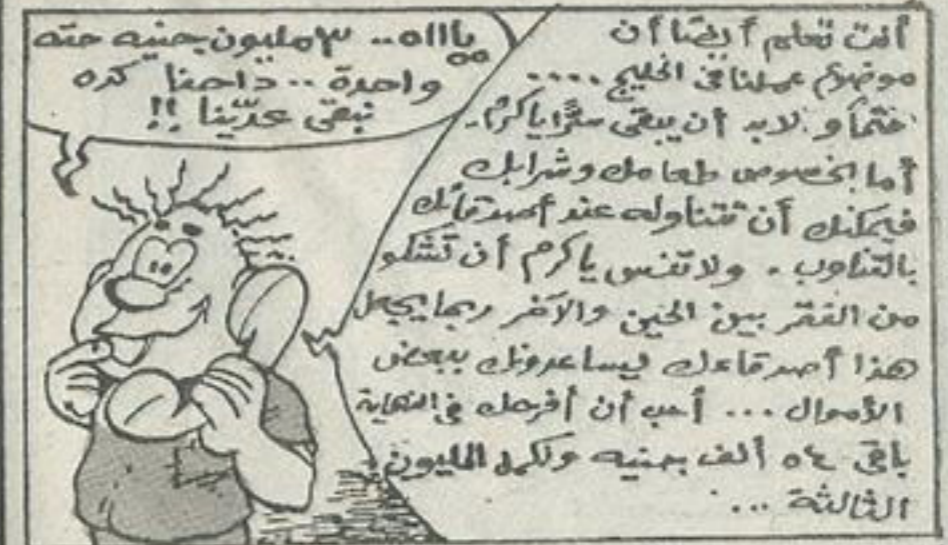 أنت تعلم أيضًا أن
موضوع عملنا في الخليج ....
حتمًا و لابد أن يبقى سرًّا ياكرم.
أما بخصوص طعامك وشرابك
فيمكنك أن تتناوله عند أصدقائك
بالتناوب. ولا تنس ياكرم أن تشكو
من الفقر بين الحين والآخر ربما يجعل
هذا أصدقاءك ليساعدونك ببعض
الأموال ... أحب أن أفرحك في النهاية
باقي ٥٤ ألف جنيه ونكمل المليون
الثالثة ...
ياااه.. ٣ مليون جنيه حته
واحدة .. داحنا كده
نبقى عدّينا !!